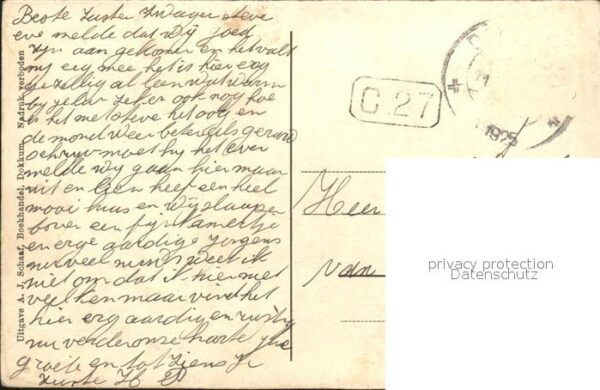 Beste Zuster Zwager en Neve
eve melde dat wij goed
zijn aan gekomen en het valt
mij erg mee het is hier erg
gezellig al leen wat warm
by zeker ook nog hoe
is het met het oog en
de mond weer beter als
moet hij het even
melde wij gaan hier maar
uit en Lien heef een heel
mooi huis en wij slaape
bove een fijn kamertje
en erge aardige jongens
nu veel nieuws weet ik
niet om dat ik hier niet
veel ken maar vind het
hier erg aardig en rustig
nu verder onze harte
groete en tot ziens je
zuste
Uitgave A. J. Schaaf, Boekhandel, Dokkum. Nadruk verboden
C.27
1925
Heer
van
privacy protection
Datenschutz